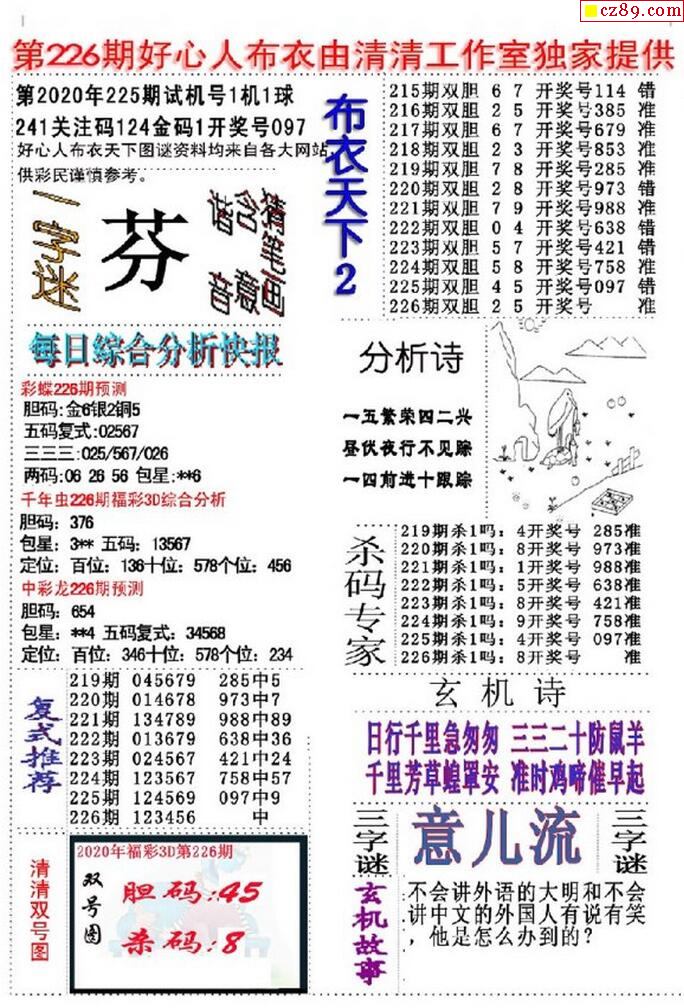 cz89.com
第226期好心人布衣由清清工作室独家提供
第2020年225期试机号1机1球
241关注码124金码1开奖号097
好心人布衣天下图谜资料均来自各大网站,
供彩民谨慎参考。
一字迷
芬
谐音
含意
猜笔画
每日综合分析快报
彩蝶226期预测
胆码:金6银2铜5
五码复式:02567
三三三:025/567/026
两码:06 26 56 包星:**6
千年虫226期福彩3D综合分析
胆码: 376
包星: 3** 五码: 13567
定位: 百位: 136十位: 578个位: 456
中彩龙226期预测
胆码: 654
包星: **4 五码复式: 34568
定位: 百位: 346十位: 578个位: 234
复式推荐
219期 045679 285中5
220期 014678 973中7
221期 134789 988中89
222期 013679 638中36
223期 024567 421中24
224期 123567 758中57
225期 124569 097中9
226期 123456 中
清清双号图
2020年福彩3D第226期
双号图
胆码:45
杀码:8
布衣天下2
215期双胆 6 7 开奖号114 错
216期双胆 2 5 开奖号385 准
217期双胆 6 7 开奖号679 准
218期双胆 2 3 开奖号853 准
219期双胆 7 8 开奖号285 准
220期双胆 2 8 开奖号973 错
221期双胆 7 9 开奖号988 准
222期双胆 0 4 开奖号638 错
223期双胆 5 7 开奖号421 错
224期双胆 5 8 开奖号758 准
225期双胆 4 5 开奖号097 错
226期双胆 2 5 开奖号 准
分析诗
一五繁荣四二兴
昼伏夜行不见踪
一四前进十跟踪
杀码专家
219期杀1吗: 4开奖号 285准
220期杀1吗: 8开奖号 973准
221期杀1吗: 1开奖号 988准
222期杀1吗: 5开奖号 638准
223期杀1吗: 8开奖号 421准
224期杀1吗: 9开奖号 758准
225期杀1吗: 4开奖号 097准
226期杀1吗: 8开奖号 准
玄机诗
日行千里急匆匆 三三二十防鼠羊
千里芳草蝗罩安 准时鸡啼催早起
三字谜
意儿流
三字谜
玄机故事
不会讲外语的大明和不会
讲中文的外国人有说有笑
,他是怎么办到的?